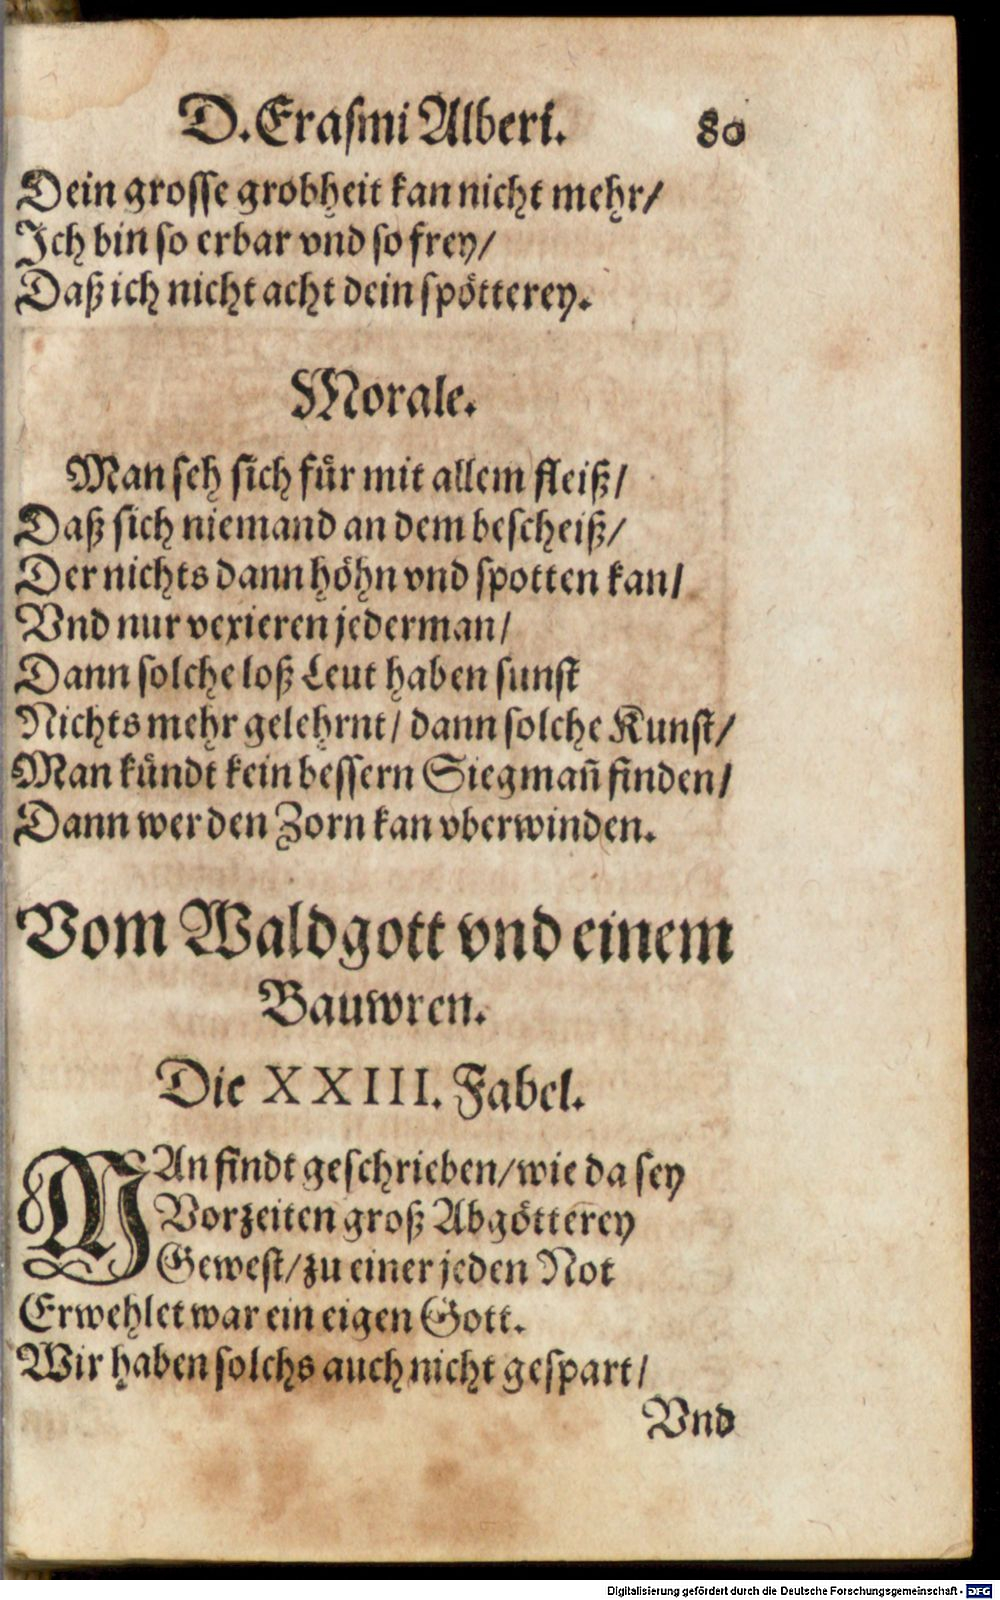 D. Erasmi Alberi. 80
Dein grosse grobheit kan nicht mehr/
Ich bin so erbar vnd so frey/
Daß ich nicht acht dein spötterey.
Morale.
Man seh sich für mit allem fleiß/
Daß sich niemand an dem bescheiß/
Der nichts dann höhn vnd spotten kan/
Vnd nur vexieren jederman/
Dann solche loß Leut haben sunst
Nichts mehr gelehrnt/ dann solche Kunst/
Man kündt kein bessern Siegmañ finden/
Dann wer den Zorn kan vberwinden.
Vom Waldgott vnd einem
Bauwren.
Die XXIII. Fabel.
MAn findt geschrieben/ wie da sey
Vorzeiten groß Abgötterey
Gewest/ zu einer jeden Not
Erwehlet war ein eigen Gott.
Wir haben solchs auch nicht gespart/
Vnd
Digitalisierung gefördert durch die Deutsche Forschungsgemeinschaft - DFG